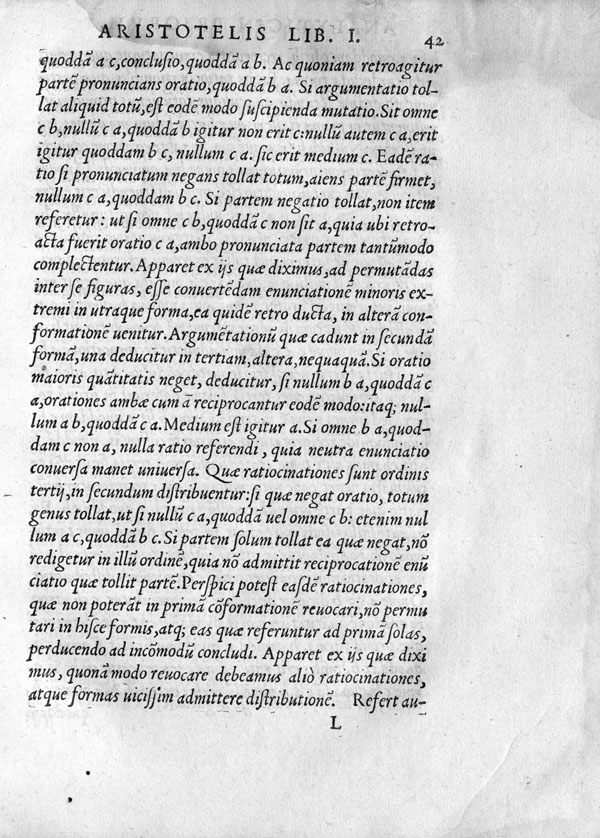 ARISTOTELIS LIB. I. 42
quoddã a c, conclusio, quoddã a b. Ac quoniam retroagitur
partẽ pronuncians oratio, quoddã b a. Si argumentatio tol-
lat aliquid totũ, est eodẽ modo suscipienda mutatio. Sit omne
c b, nullũ c a, quoddã b igitur non erit c: nullũ autem c a, erit
igitur quoddam b c, nullum c a. sic erit medium c. Eadẽ ra-
tio si pronunciatum negans tollat totum, aiens partẽ firmet,
nullum c a, quoddam b c. Si partem negatio tollat, non item
referetur: ut si omne c b, quoddã c non sit a, quia ubi retro-
acta fuerit oratio c a, ambo pronunciata partem tantũmodo
complectentur. Apparet ex ijs quæ diximus, ad permutãdas
inter se figuras, esse conuertẽdam enunciationẽ minoris ex-
tremi in utraque forma, ea quidẽ retro ducta, in alterã con-
formationẽ uenitur. Argumẽtationũ quæ cadunt in secundã
formã, una deducitur in tertiam, altera, nequaquã. Si oratio
maioris quãtitatis neget, deducitur, si nullum b a, quoddã c
a, orationes ambæ cum a reciprocantur eodẽ modo: itaq; nul-
lum a b, quoddã c a. Medium est igitur a. Si omne b a, quod-
dam c non a, nulla ratio referendi, quia neutra enunciatio
conuersa manet uniuersa. Quæ ratiocinationes sunt ordinis
tertij, in secundum distribuentur: si quæ negat oratio, totum
genus tollat, ut si nullũ c a, quoddã uel omne c b: etenim nul
lum a c, quoddã b c. Si partem solum tollat ea quæ negat, nõ
redigetur in illũ ordinẽ, quia nõ admittit reciprocationẽ enũ
ciatio quæ tollit partẽ. Perspici potest easdẽ ratiocinationes,
quæ non poterãt in primã cõformationẽ reuocari, nõ permu
tari in hisce formis, atq; eas quæ referuntur ad primã solas,
perducendo ad incõmodũ concludi. Apparet ex ijs quæ dixi
mus, quonã modo reuocare debeamus aliò ratiocinationes,
atque formas uicissim admittere distributionẽ. Refert au-
L